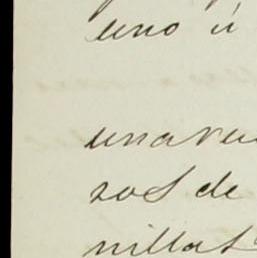 uno ú
una ru
sos de
nillas